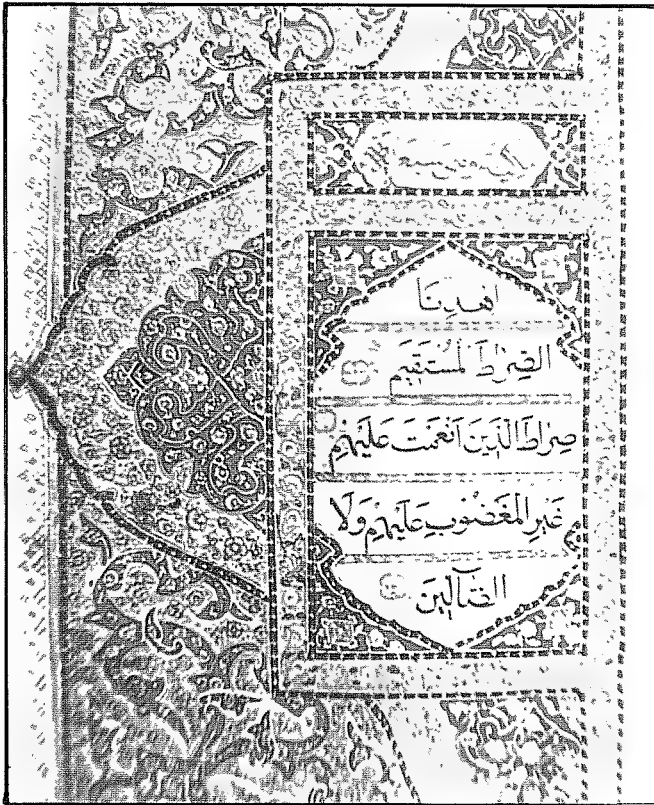 اهْدِنَا
الصِّرَاطَ الْمُسْتَقِيمَ
صِرَاطَ الَّذِينَ أَنْعَمْتَ عَلَيْهِمْ
غَيْرِ الْمَغْضُوبِ عَلَيْهِمْ وَلَا
الضَّالِّينَ